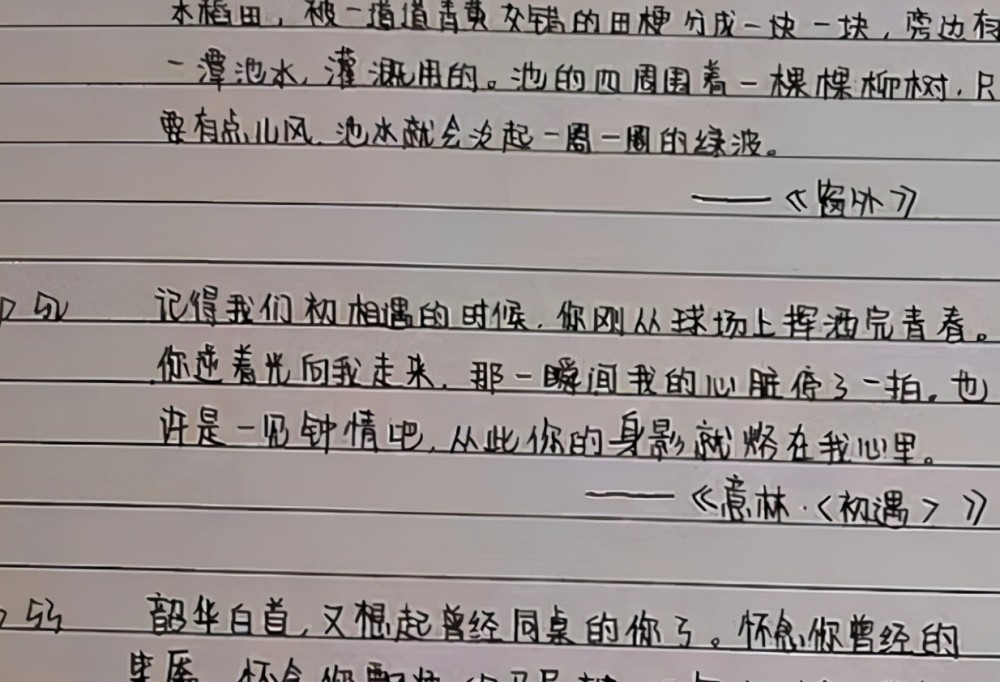 水稻田，被一道道青黄交错的田梗分成一块一块，旁边有
一潭池水，灌溉用的。池的四周围着一棵棵柳树，只
要有点儿风，池水就会泛起一圈一圈的绿波。
——《窗外》
P52 记得我们初相遇的时候，你刚从球场上挥洒完青春。
你逆着光向我走来，那一瞬间我的心脏停了一拍。也
许是一见钟情吧，从此你的身影就烙在我心里。
——《意林·<初遇>》
P53 韶华白首，又想起曾经同桌的你了。怀念你曾经的
怀念你